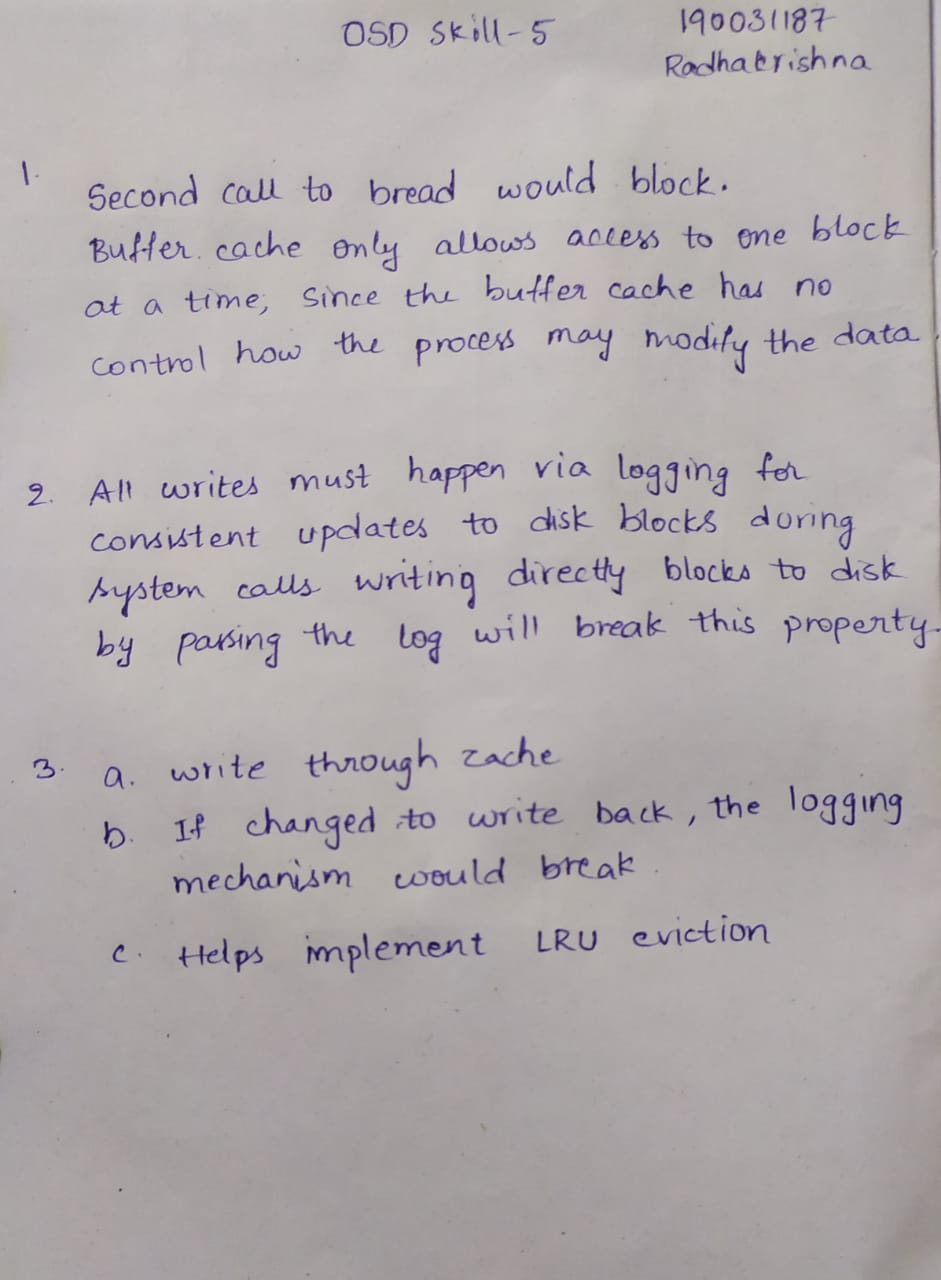 OSD Skill-5
190031187
Radhakrishna
1.
Second call to bread would block.
Buffer cache only allows access to one block
at a time, since the buffer cache has no
control how the process may modify the data
2. All writes must happen via logging for
consistent updates to disk blocks during
system calls writing directly blocks to disk
by passing the log will break this property.
3. a. write through cache
b. If changed to write back, the logging
mechanism would break.
c. Helps implement LRU eviction